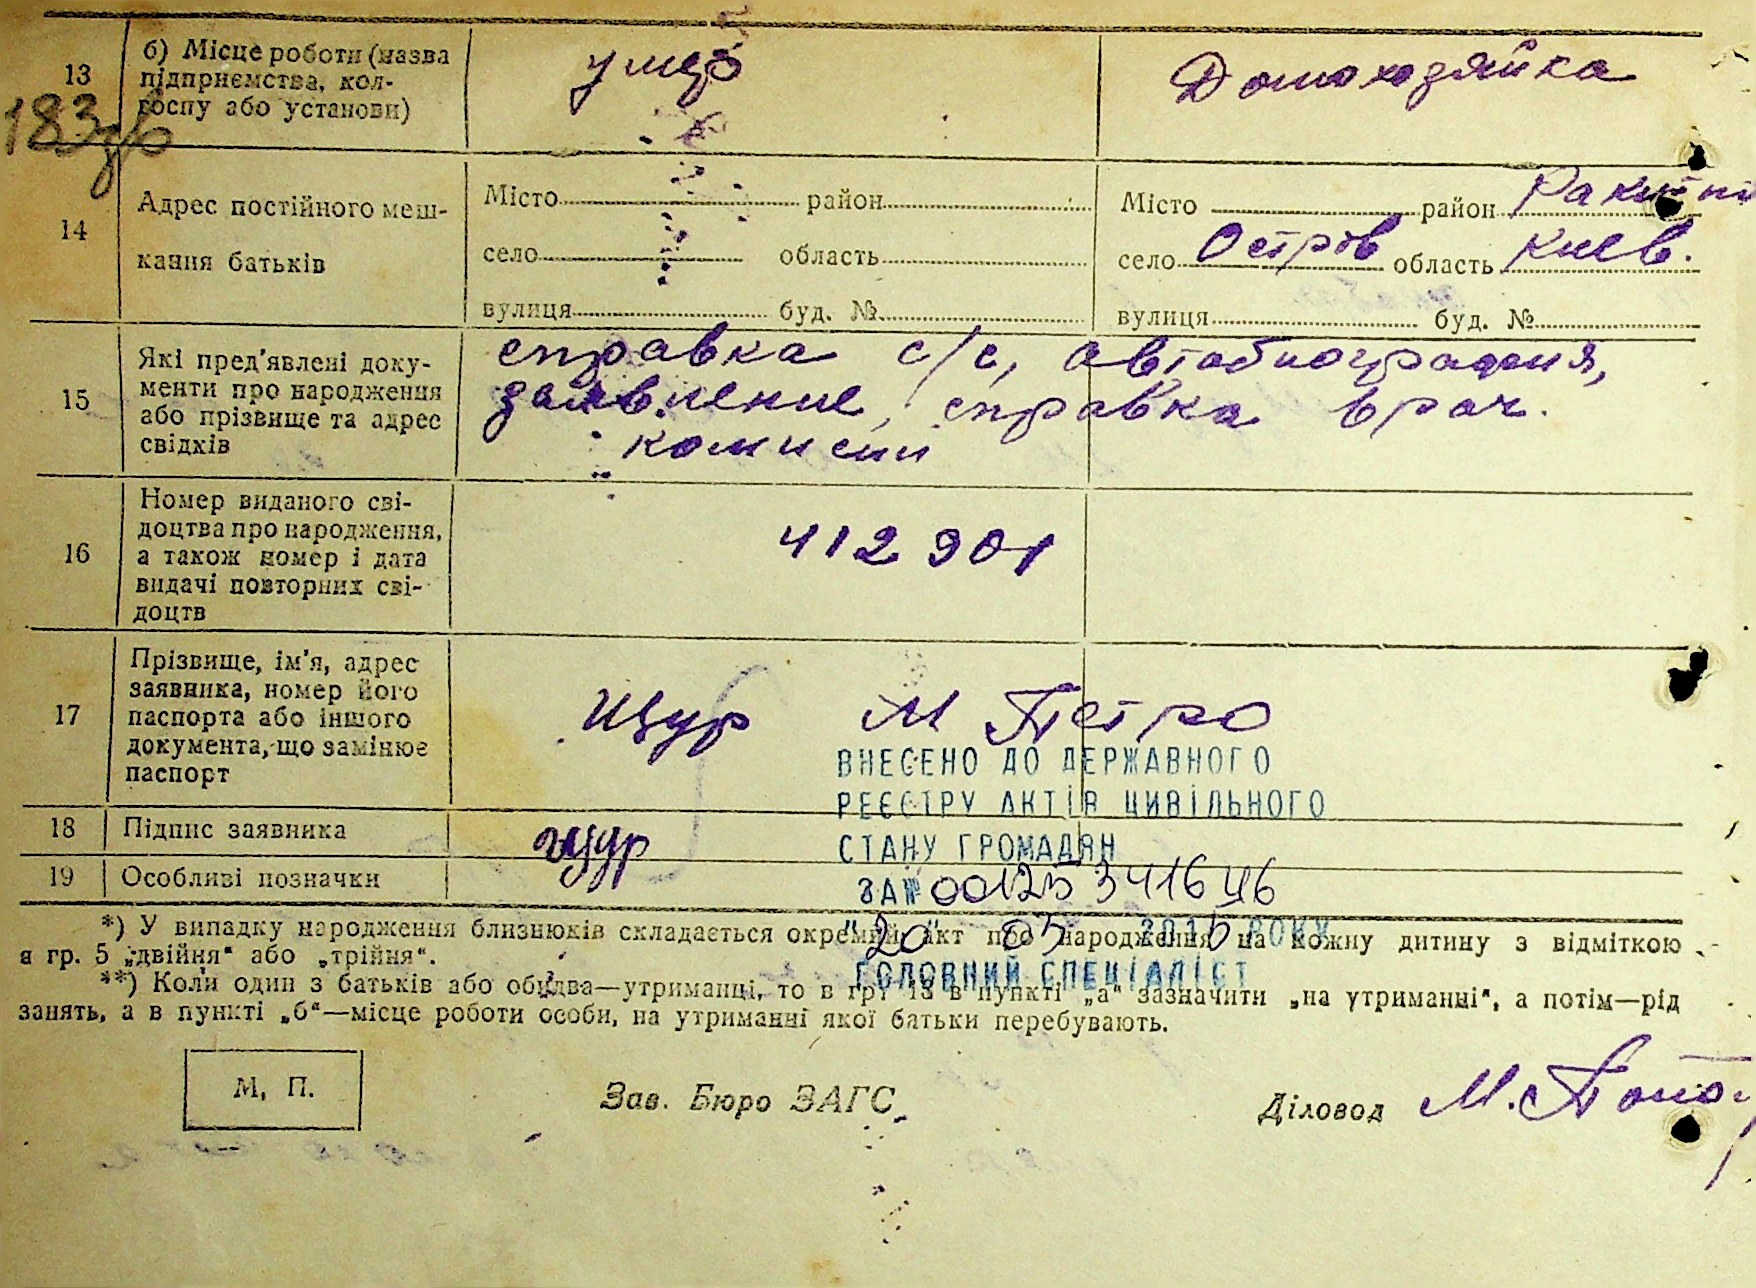 13
б) Місце роботи (назва
підприємства, кол-
госпу або установи)
умер
Домохозяйка
183зв
14
Адрес постійного меш-
кання батьків
Місто район
село область
вулиця буд. №
Місто район Ракитн
село Острів область Киев.
вулиця буд. №
15
Які пред'явлені доку-
менти про народження
або прізвище та адрес
свідків
справка с/с, автобиография,
заявление, справка врач.
комисии
16
Номер виданого сві-
доцтва про народження,
а також номер і дата
видачі повторних сві-
доцтв
412901
17
Прізвище, ім'я, адрес
заявника, номер його
паспорта або іншого
документа, що замінює
паспорт
Щур М Петро
ВНЕСЕНО ДО ДЕРЖАВНОГО
РЕЄСТРУ АКТІВ ЦИВІЛЬНОГО
СТАНУ ГРОМАДЯН
ЗА № 00125341646
"20" 05 РОКУ
ГОЛОВНИЙ СПЕЦІАЛІСТ
18
Підпис заявника
Щур
19
Особливі позначки
*) У випадку народження близнюків складається окремий акт про народження на кожну дитину з відміткою
в гр. 5 „двійня" або „трійня".
**) Коли один з батьків або обидва—утриманці, то в гр. 13 в пункті „а" зазначити „на утриманні", а потім—рід
занять, а в пункті „б"—місце роботи особи, на утриманні якої батьки перебувають.
М. П.
Зав. Бюро ЗАГС
Діловод М.